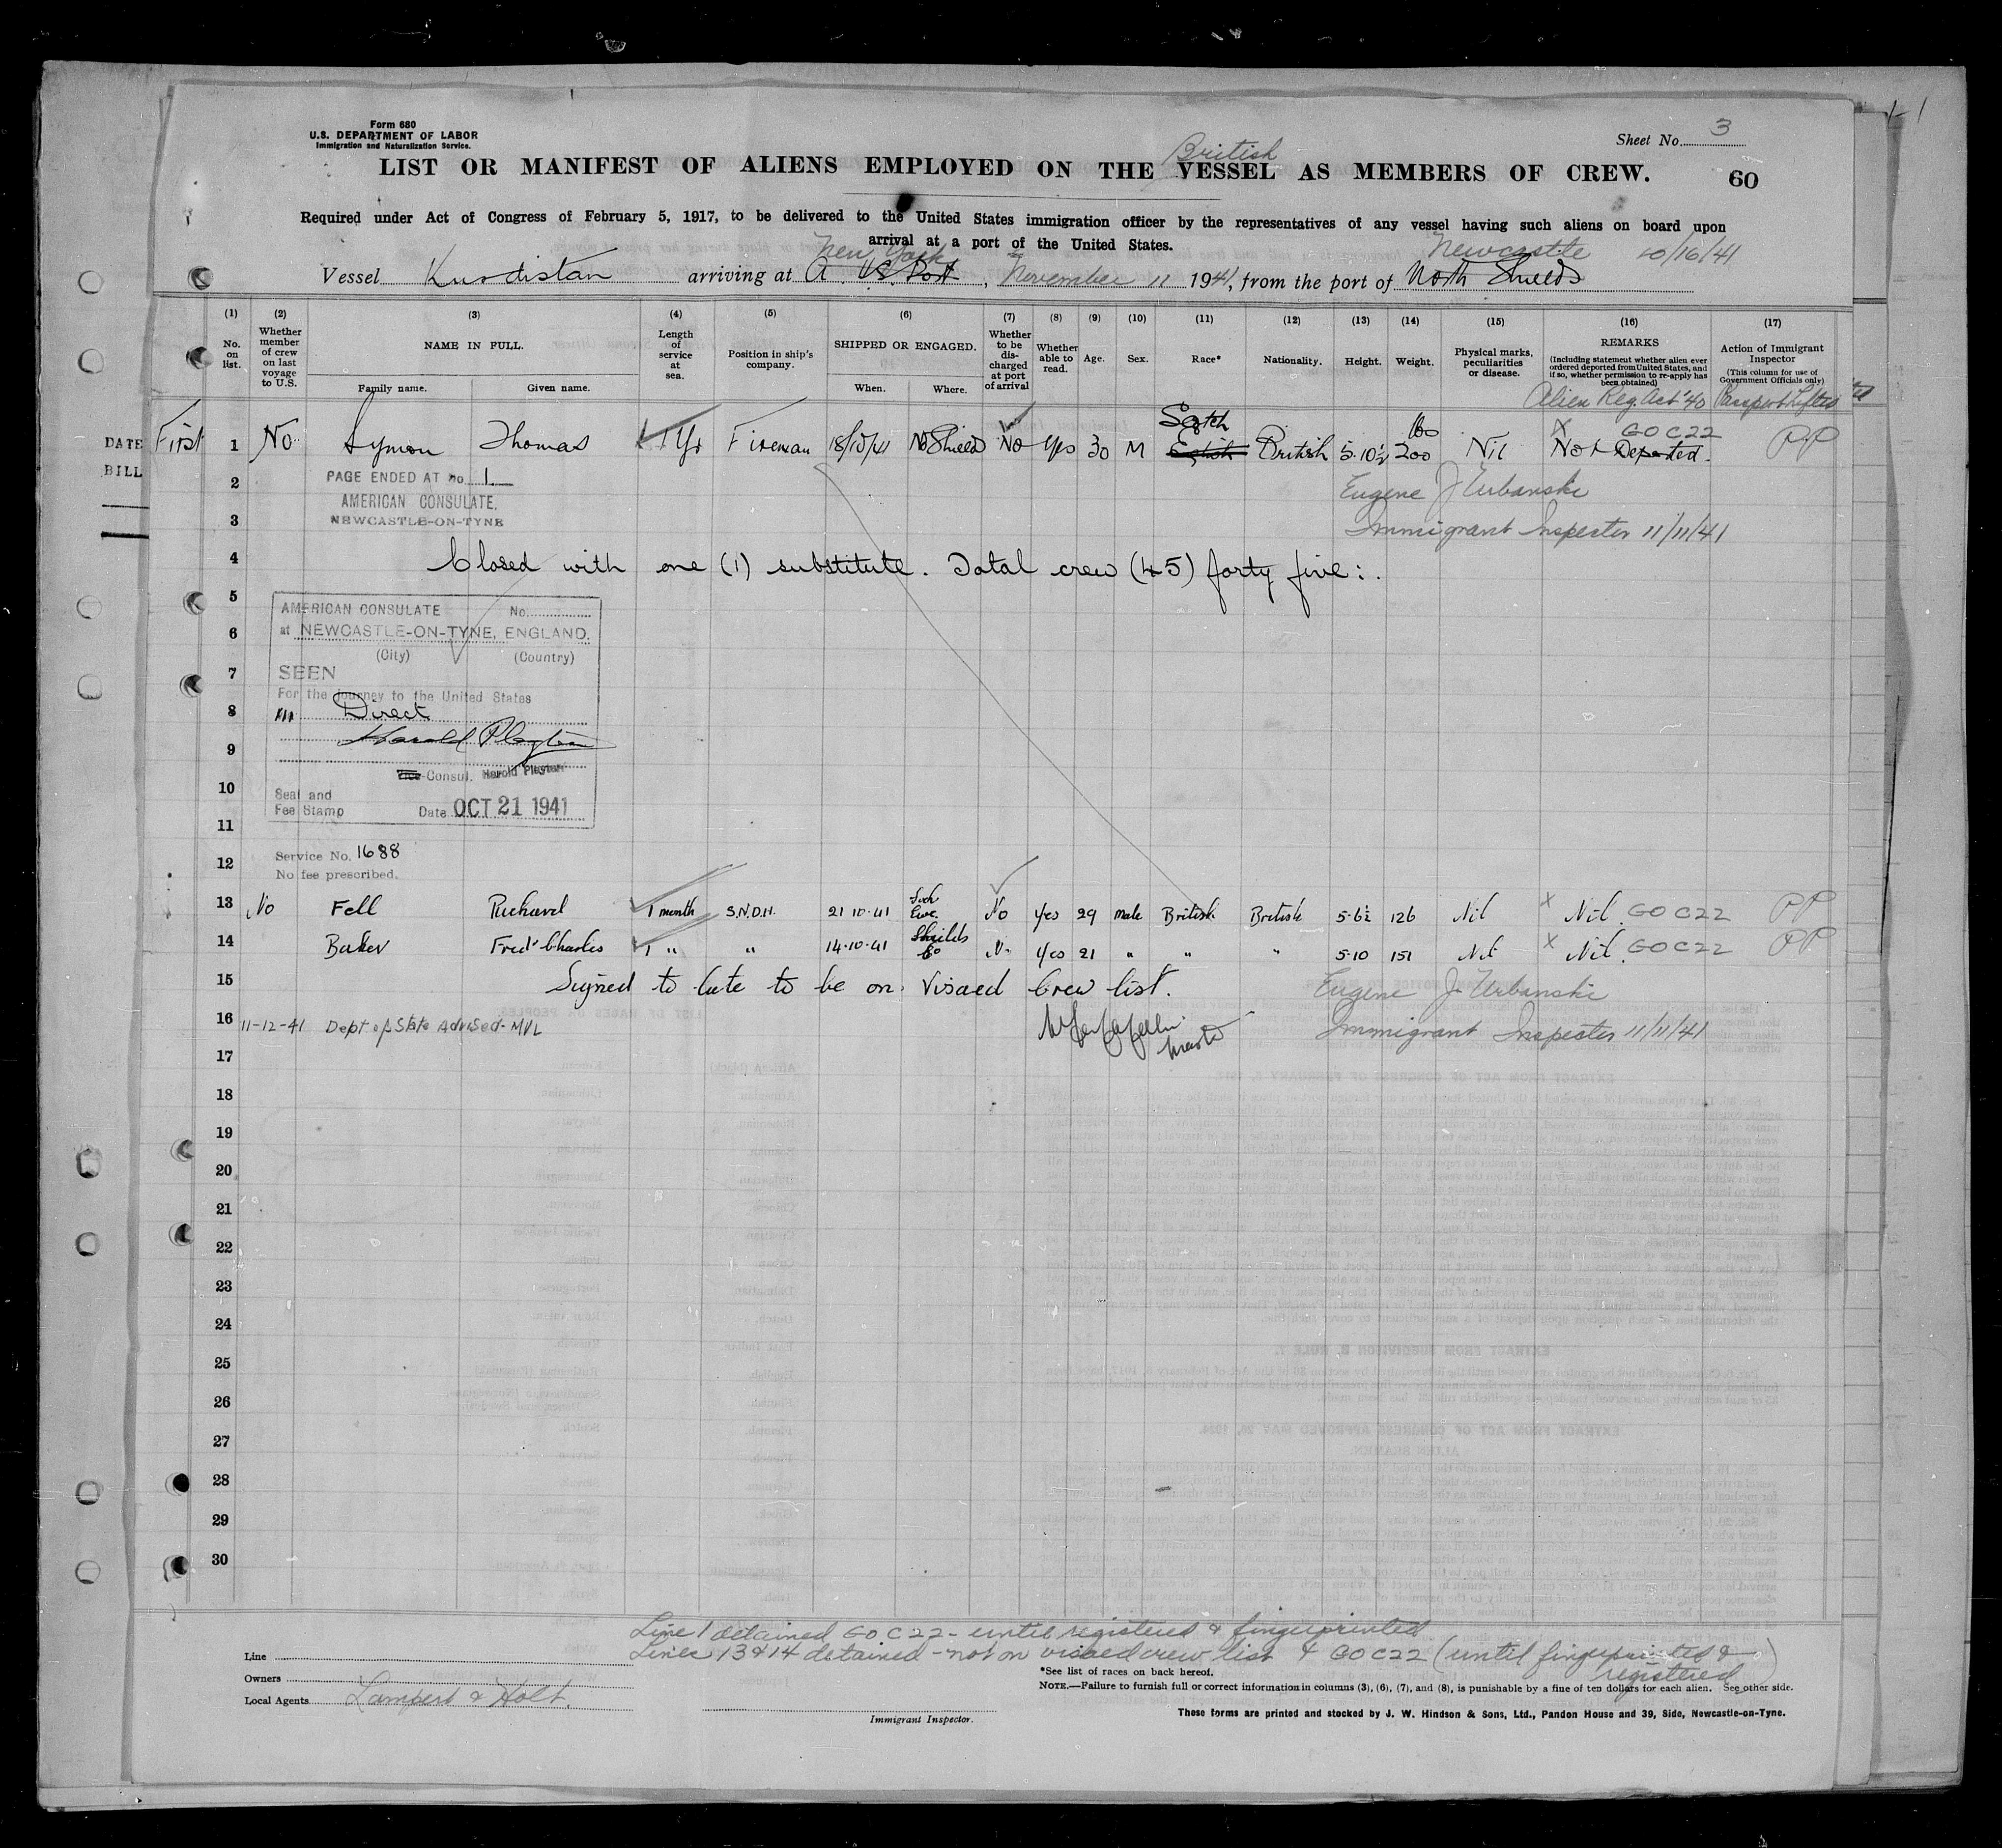 Form 680
U.S. DEPARTMENT OF LABOR
Immigration and Naturalization Service.
Sheet No. 3
British
LIST OR MANIFEST OF ALIENS EMPLOYED ON THE VESSEL AS MEMBERS OF CREW.
60
Required under Act of Congress of February 5, 1917, to be delivered to the United States immigration officer by the representatives of any vessel having such aliens on board upon
arrival at a port of the United States.
New York Newcastle 10/16/41
Vessel Kurdistan arriving at A. US Port, November 11 1941, from the port of North Shields
(1) (2) (3) (4) (5) (6) (7) (8) (9) (10) (11) (12) (13) (14) (15) (16) (17)
No. on list.
Whether member of crew on last voyage to U.S.
NAME IN FULL.
Family name. Given name.
Length of service at sea.
Position in ship's company.
SHIPPED OR ENGAGED.
When. Where.
Whether to be discharged at port of arrival
Whether able to read.
Age.
Sex.
Race*
Nationality.
Height.
Weight.
Physical marks, peculiarities or disease.
REMARKS
(Including statement whether alien ever ordered deported from United States, and if so, whether permission to re-apply has been obtained)
Action of Immigrant Inspector
(This column for use of Government Officials only)
Alien Reg. Act '40 Passport Lifted
DATE
BILL
Scotch 160 X GOC22
First 1 No Symon Thomas 1 Yr Fireman 18/10/41 No Shields No Yes 30 M English British 5-10½ 200 Nil Not Deported. PP
2 PAGE ENDED AT no 1 Eugene J Urbanski
AMERICAN CONSULATE,
3 NEWCASTLE-ON-TYNE Immigrant Inspector 11/11/41
4 Closed with one (1) substitute. Total crew (45) forty five:.
5
AMERICAN CONSULATE No.
6 at NEWCASTLE-ON-TYNE, ENGLAND.
(City) (Country)
7 SEEN
For the journey to the United States
8 Direct
9 Harold Playter
Vice-Consul. Harold Playter
10 Seal and
Fee Stamp Date OCT 21 1941
11
12 Service No. 1688
No fee prescribed.
13 No Fell Richard 1 month S.N.D.H. 21-10-41 Loch Ewe. No Yes 29 male British British 5-6½ 126 Nil X Nil GOC22 PP
14 Baker Fred' Charles 1 " " 14-10-41 Shields No Yes 21 " " " 5-10 151 Nil X Nil. GOC22 PP
15 Signed to late to be on Visaed Crew list. Eugene J Urbanski
16 11-12-41 Dept of State Advised-MVL Master Immigrant Inspector 11/11/41
17
18
19
20
21
22
23
24
25
26
27
28
29
30
Line 1 detained GOC22 - until registered & fingerprinted
Lines 13&14 detained - not on visaed crew list & GOC22 (until fingerprinted & registered)
Line
Owners
Local Agents Lampert & Holt.
*See list of races on back hereof.
NOTE.—Failure to furnish full or correct information in columns (3), (6), (7), and (8), is punishable by a fine of ten dollars for each alien. See other side.
Immigrant Inspector.
These forms are printed and stocked by J. W. Hindson & Sons, Ltd., Pandon House and 39, Side, Newcastle-on-Tyne.